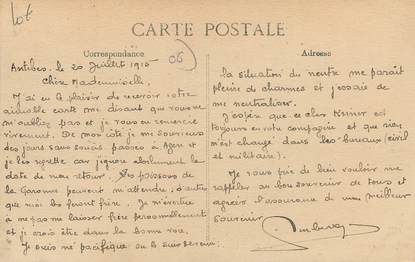 Lot
CARTE POSTALE
Correspondance
06
Adresse
Antibes, le 20 Juillet 1915
Chère Mademoiselle
J'ai eu le plaisir de recevoir votre
aimable carte me disant que vous ne
m'oubliez pas et je vous en remercie
vivement. De mon côté je me souviens
des jours sans soucis passés à Agen et
je les regrette car j'ignore absolument la
date de mon retour. Les poissons de
la Garonne peuvent m'attendre, d'autres
que moi les feront frire. Je m'évertue
à ne pas me laisser frire personnellement
et je crois être dans la bonne voie.
Je suis né pacifique ou le suis devenu;
la situation du neutre me paraît
pleine de charmes et j'essaie de
me neutraliser.
J'espère que ce cher est
toujours en votre compagnie et que rien
n'est changé dans les bureaux (civil
et militaire).
Je vous prie de bien vouloir me
rappeler au bon souvenir de tous et
agréer l'assurance de mon meilleur
souvenir